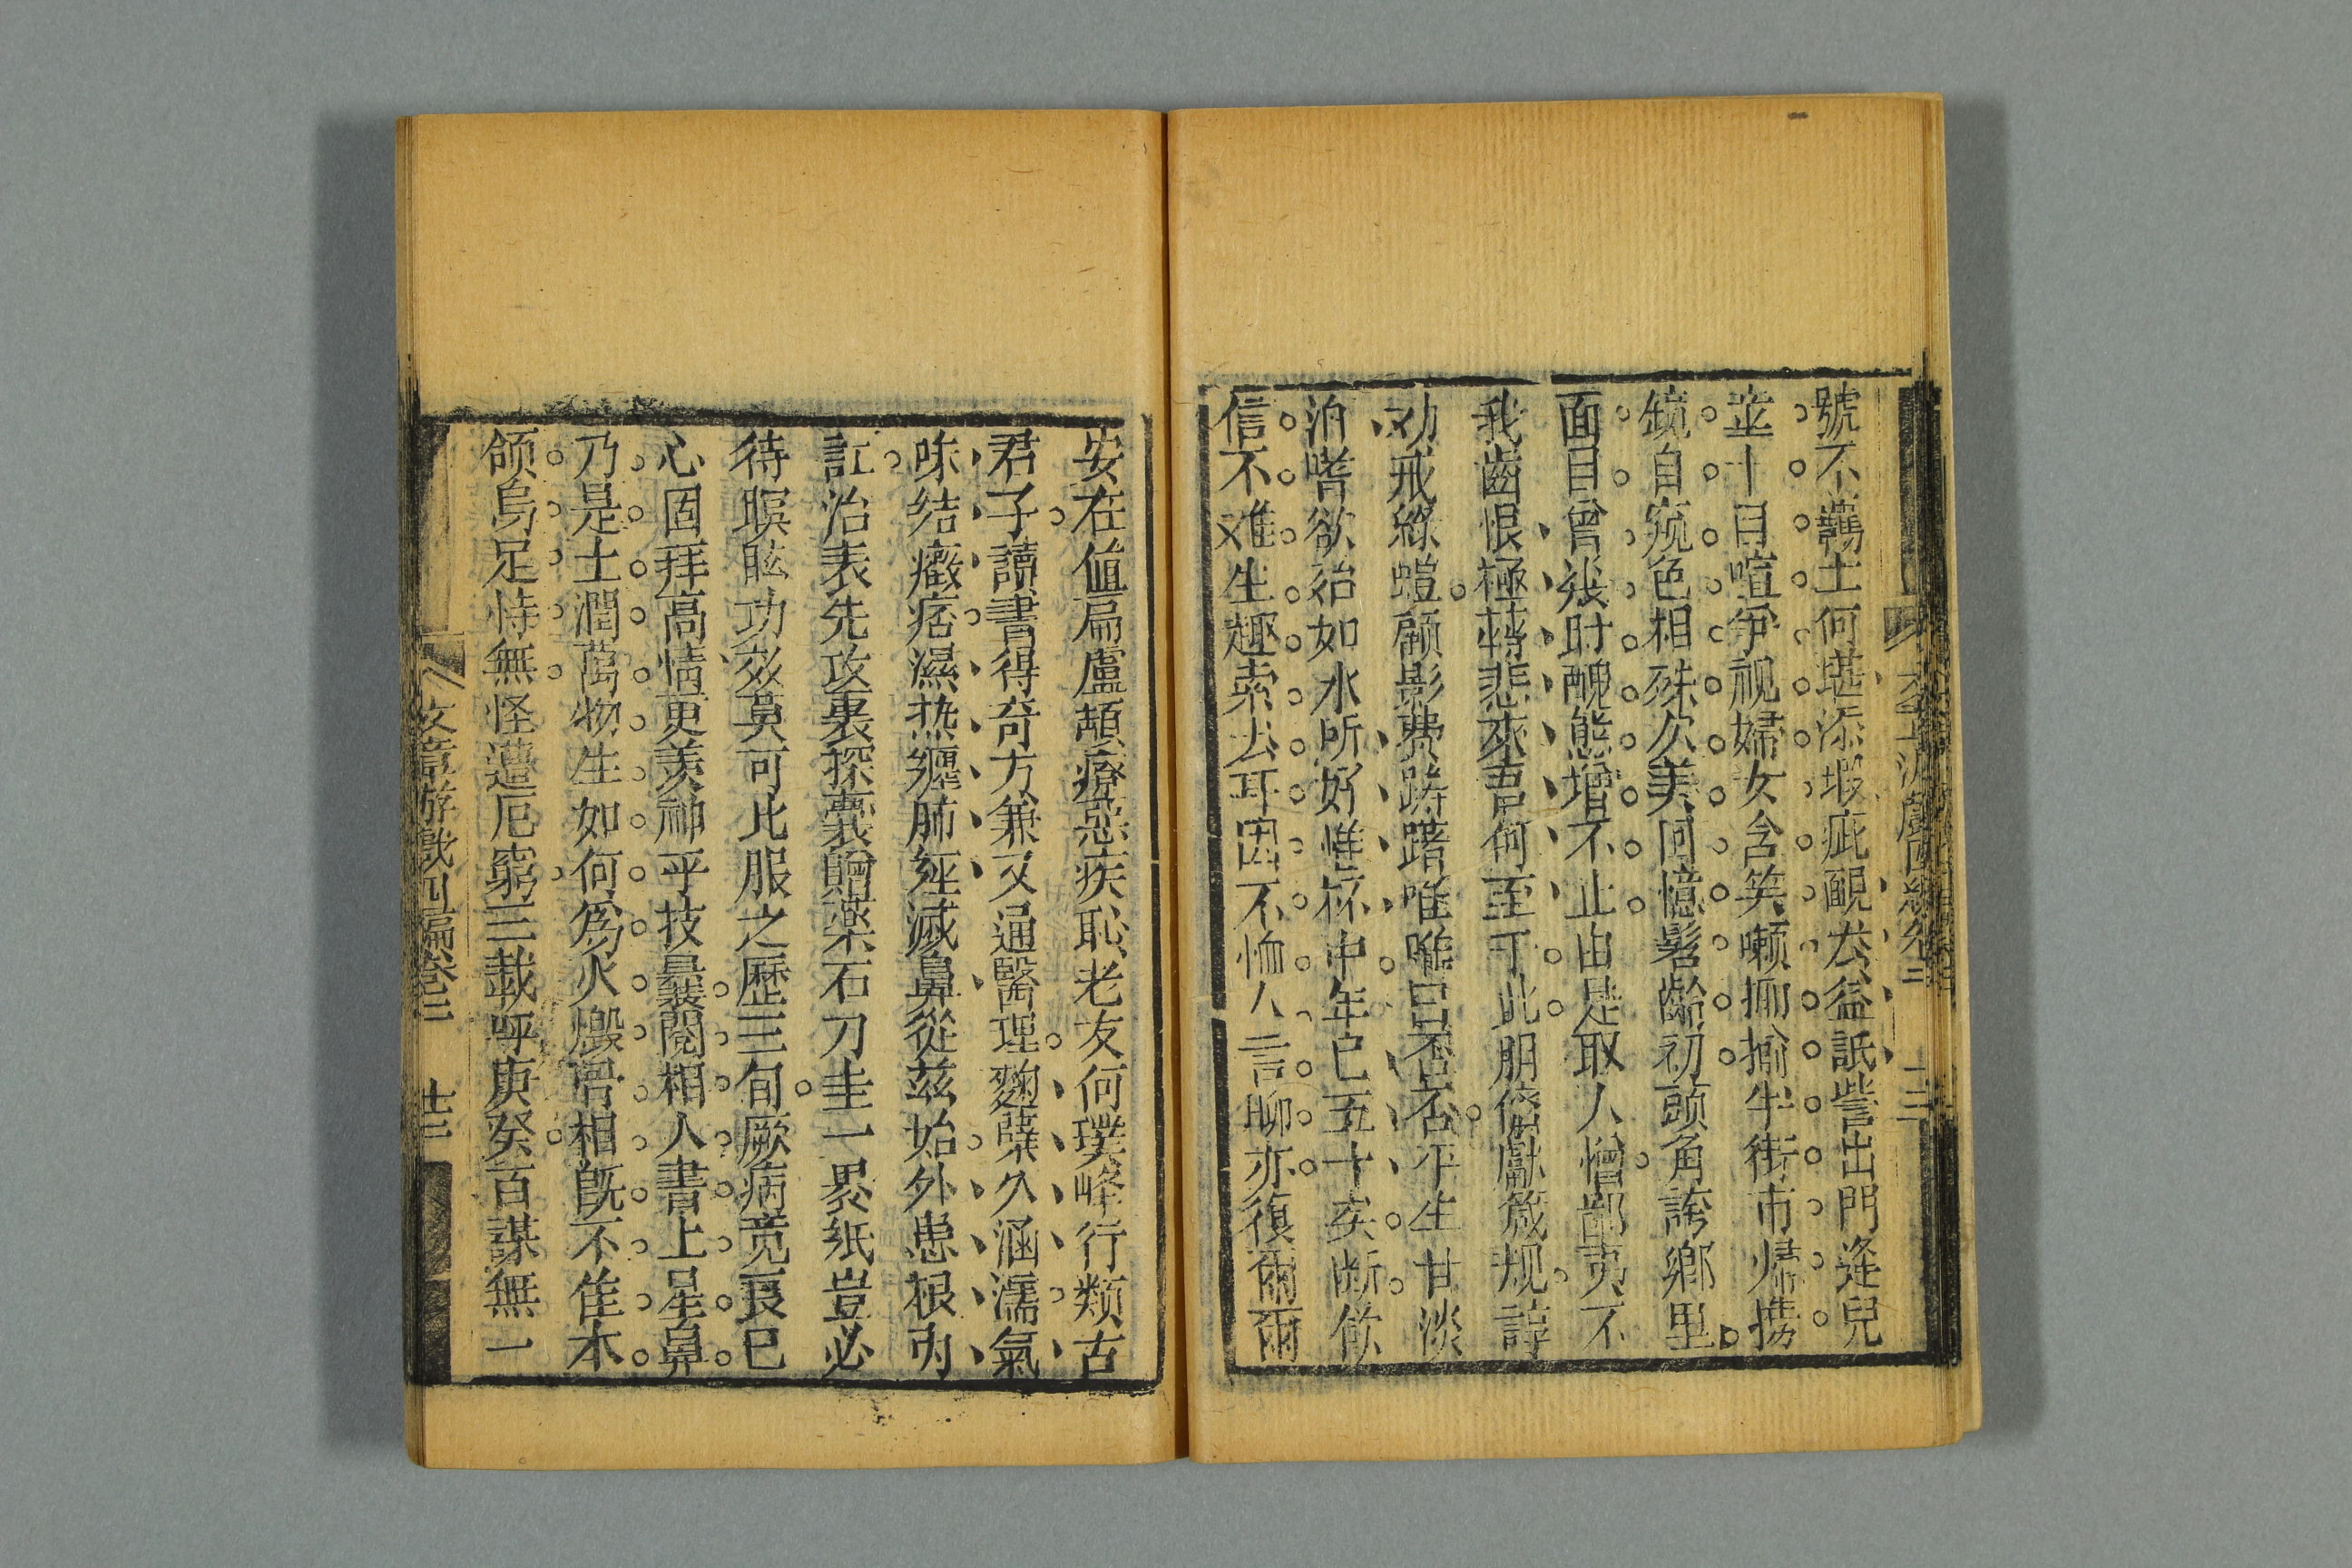 號不諵士何堪添瑕疵靦厷益詆訾出門逢兒
並十目喧爭视婦女含笑嚬揶揄牛街市㷌携
鏡自窺色相殊久美回憶髫齡初頭角誇鄉里
面目曾幾时醜態增不止由是取人憎鄙夷不
我齒恨極轉悲來吾何至于此朋儕獻箴规諄
劝戒絲螘顧影費躊躇唯唯曰否否平生甘淡
泊嗜欲殆如水所好惟杯中年已五十矣断飲
信不难生趣索去耳因不恤人言聊亦復爾爾
安在值扁盧頡療惡疾恥老友何璞峰行類古
君子讀書得奇方兼又通醫理麴蘖久涵濡氣
味结癥痞濕热纒肺經滅鼻從茲始外患根內
訌治表先攻裏探囊贈藥石刀圭一裹紙豈必
待瞑眩功效莫可比服之歷三旬厥病竟良已
心固拜高情更羡神乎技曩閱相人書上星鼻
乃是土潤萬物生如何為火燬骨相旣不隹本
頜烏足恃無怪遭厄窮三載呼庚癸百謀無一
文章游戲四編卷三 十三